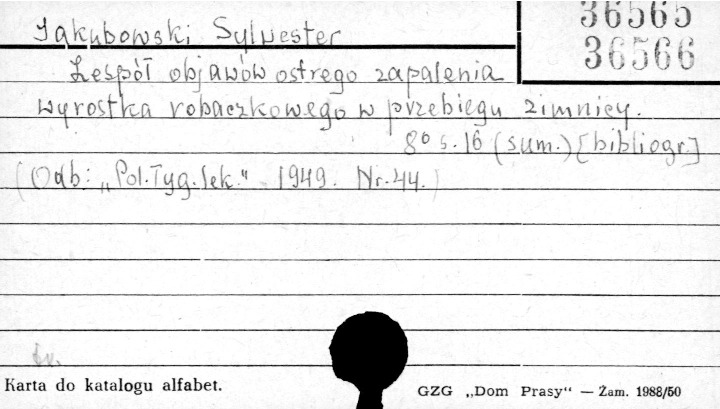 Jakubowski Sylwester
36565
36566
Zespół objawów ostrego zapalenia
wyrostka robaczkowego w przebiegu zimnicy.
8° s. 16 (sum.) [bibliogr.]
(Odb: „Pol. Tyg. lek." 1949. Nr. 44.)
Karta do katalogu alfabet.
GZG „Dom Prasy“ — Żam. 1988/50